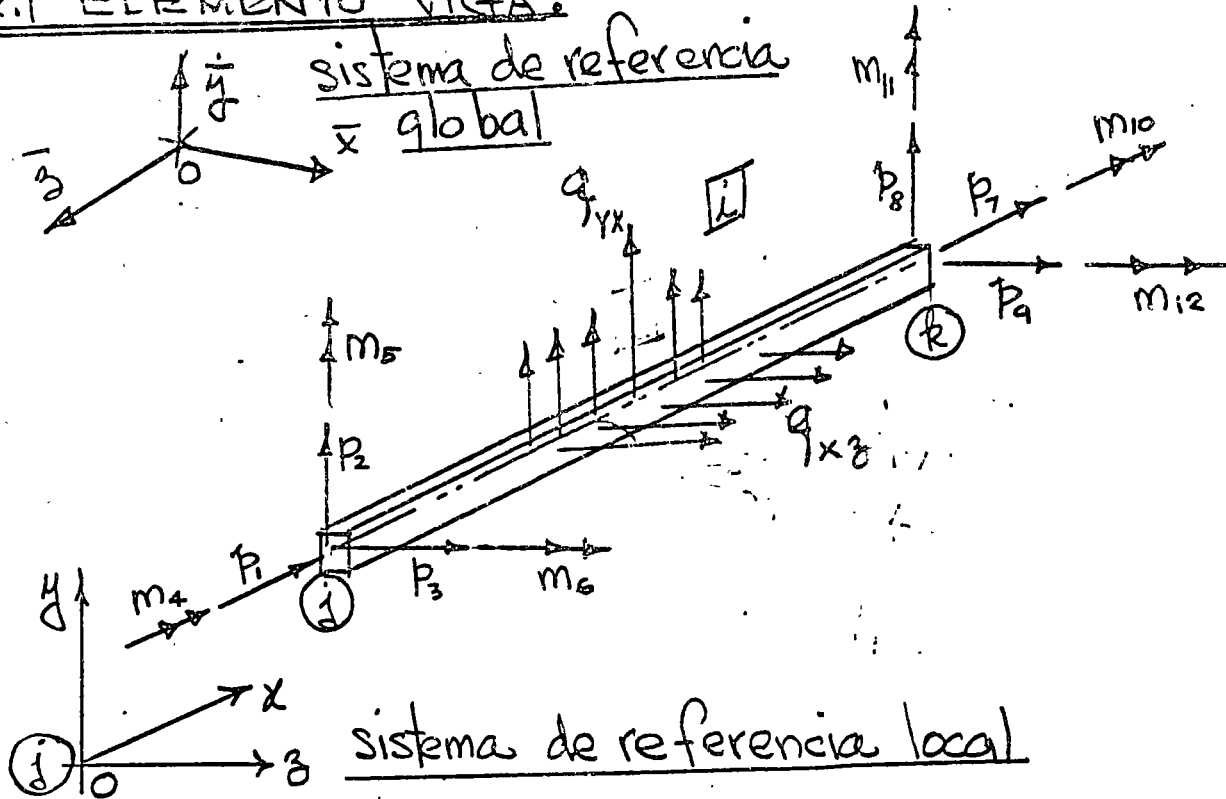 .1 ELEMENTO VIGA.
sistema de referencia
global
ȳ
x̄
z̄
O
m₁₁
m₁₀
p₈
p₇
q_yx
i
p₉
m₁₂
k
m₅
p₂
q_xz
p₁
m₄
p₃
m₆
j
y
x
j
O
z
sistema de referencia local